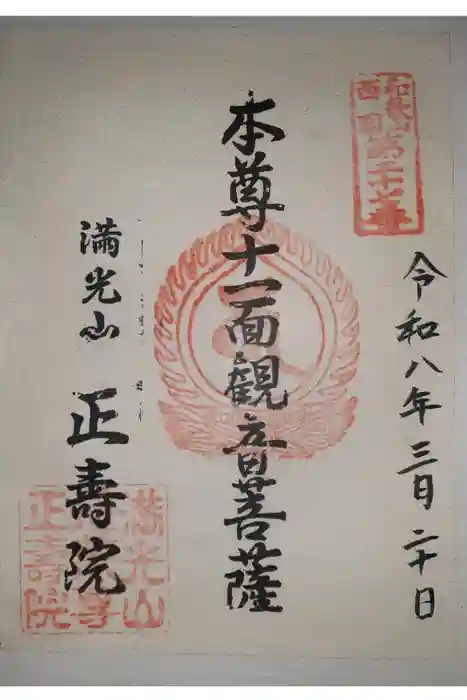 和歌山
西国
令和八年三月二十日
本尊十一面観音菩薩
満光山
正壽院
満光山
寺
正壽院